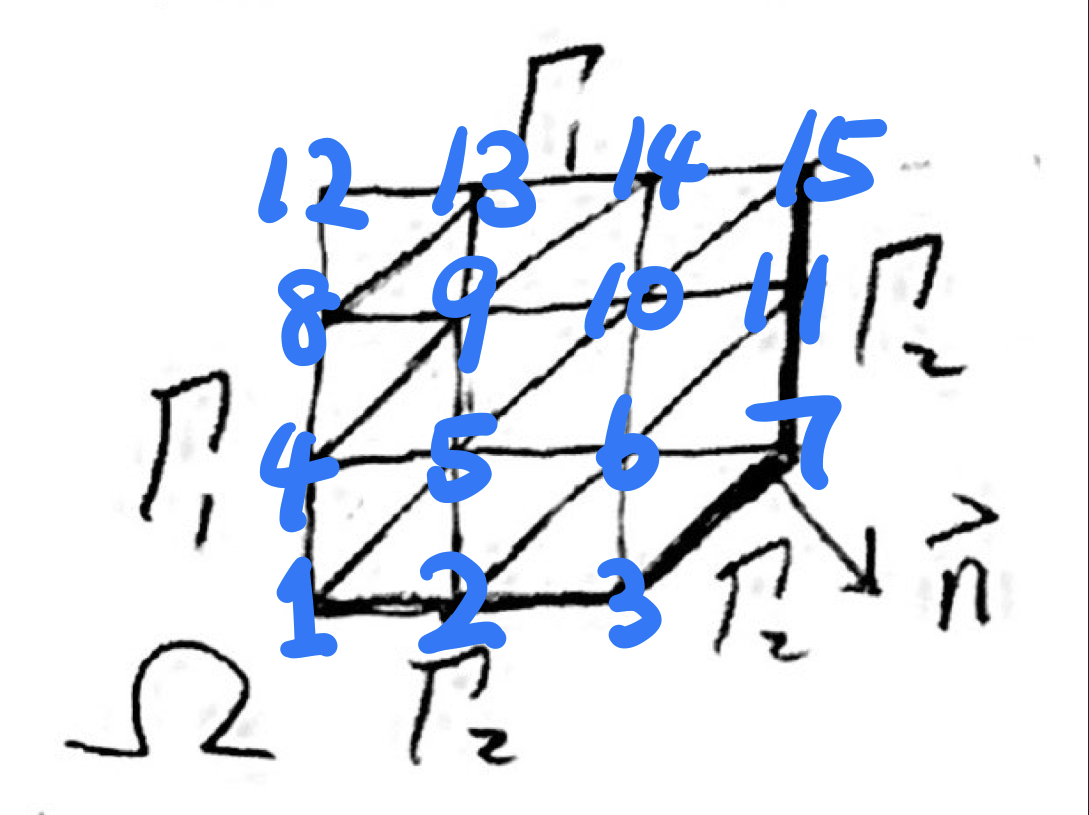 Γ₁
12 13 14 15
8 9 10 11
Γ₂
Γ₁
4 5 6 7
1 2 3
Γ₂
n⃗
Γ₂
Ω